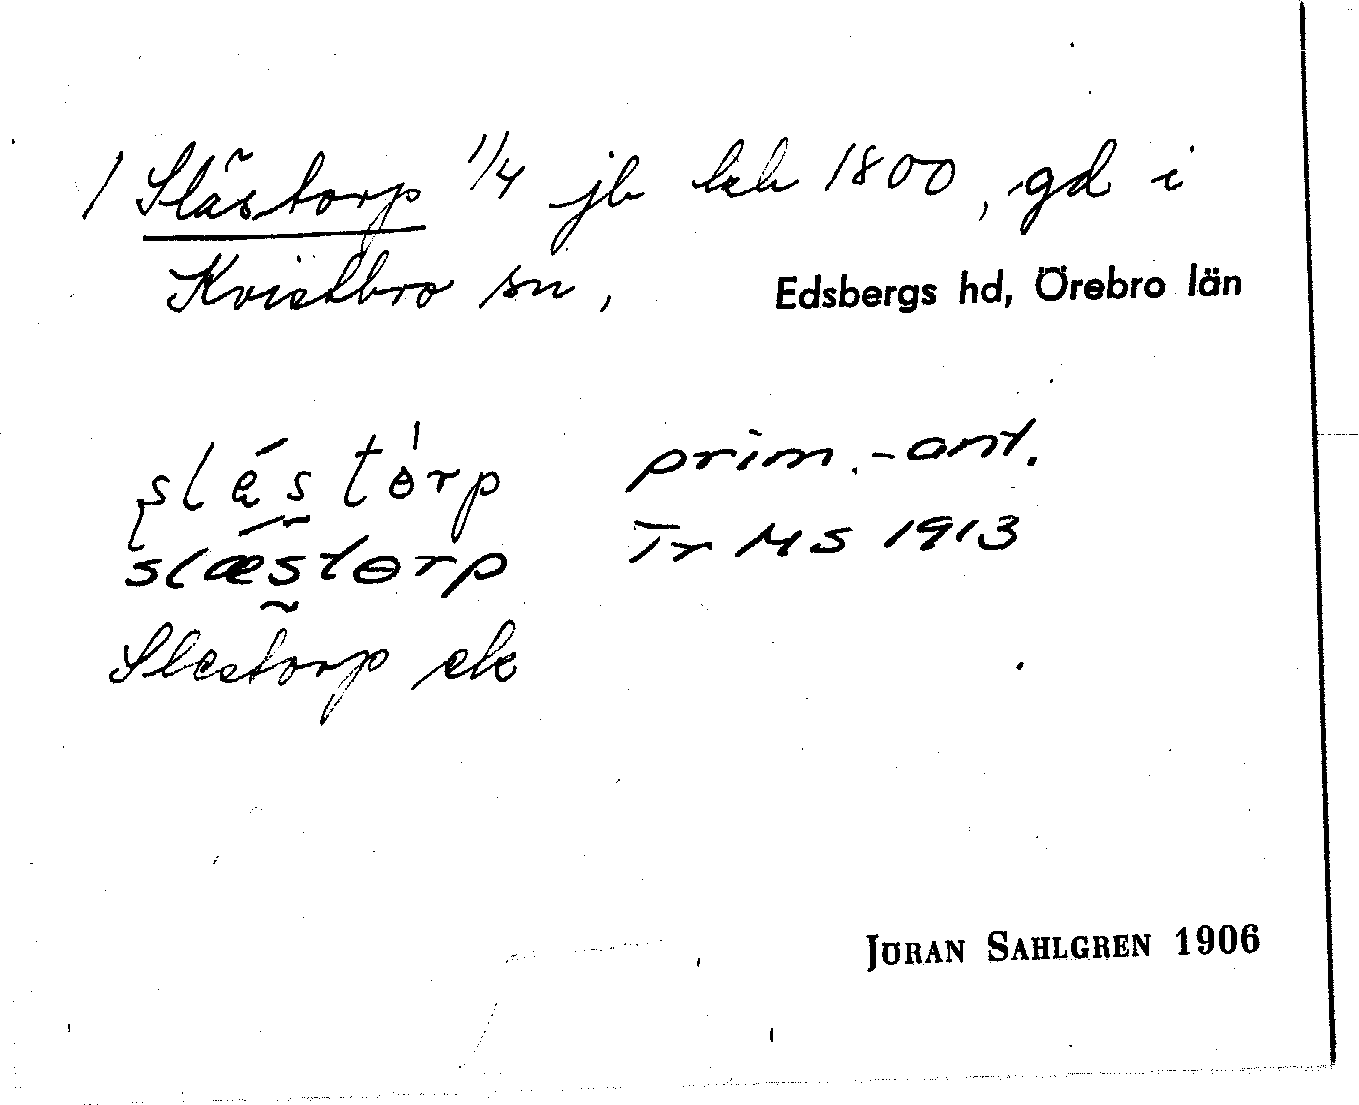 1 Slästorp 1/4 jb lcb 1800, gd i
Kvistbro sn, Edsbergs hd, Örebro län
slǽstòrp prim.-ant.
slæstorp Tr MS 1913
Slestorp ek
JÖRAN SAHLGREN 1906